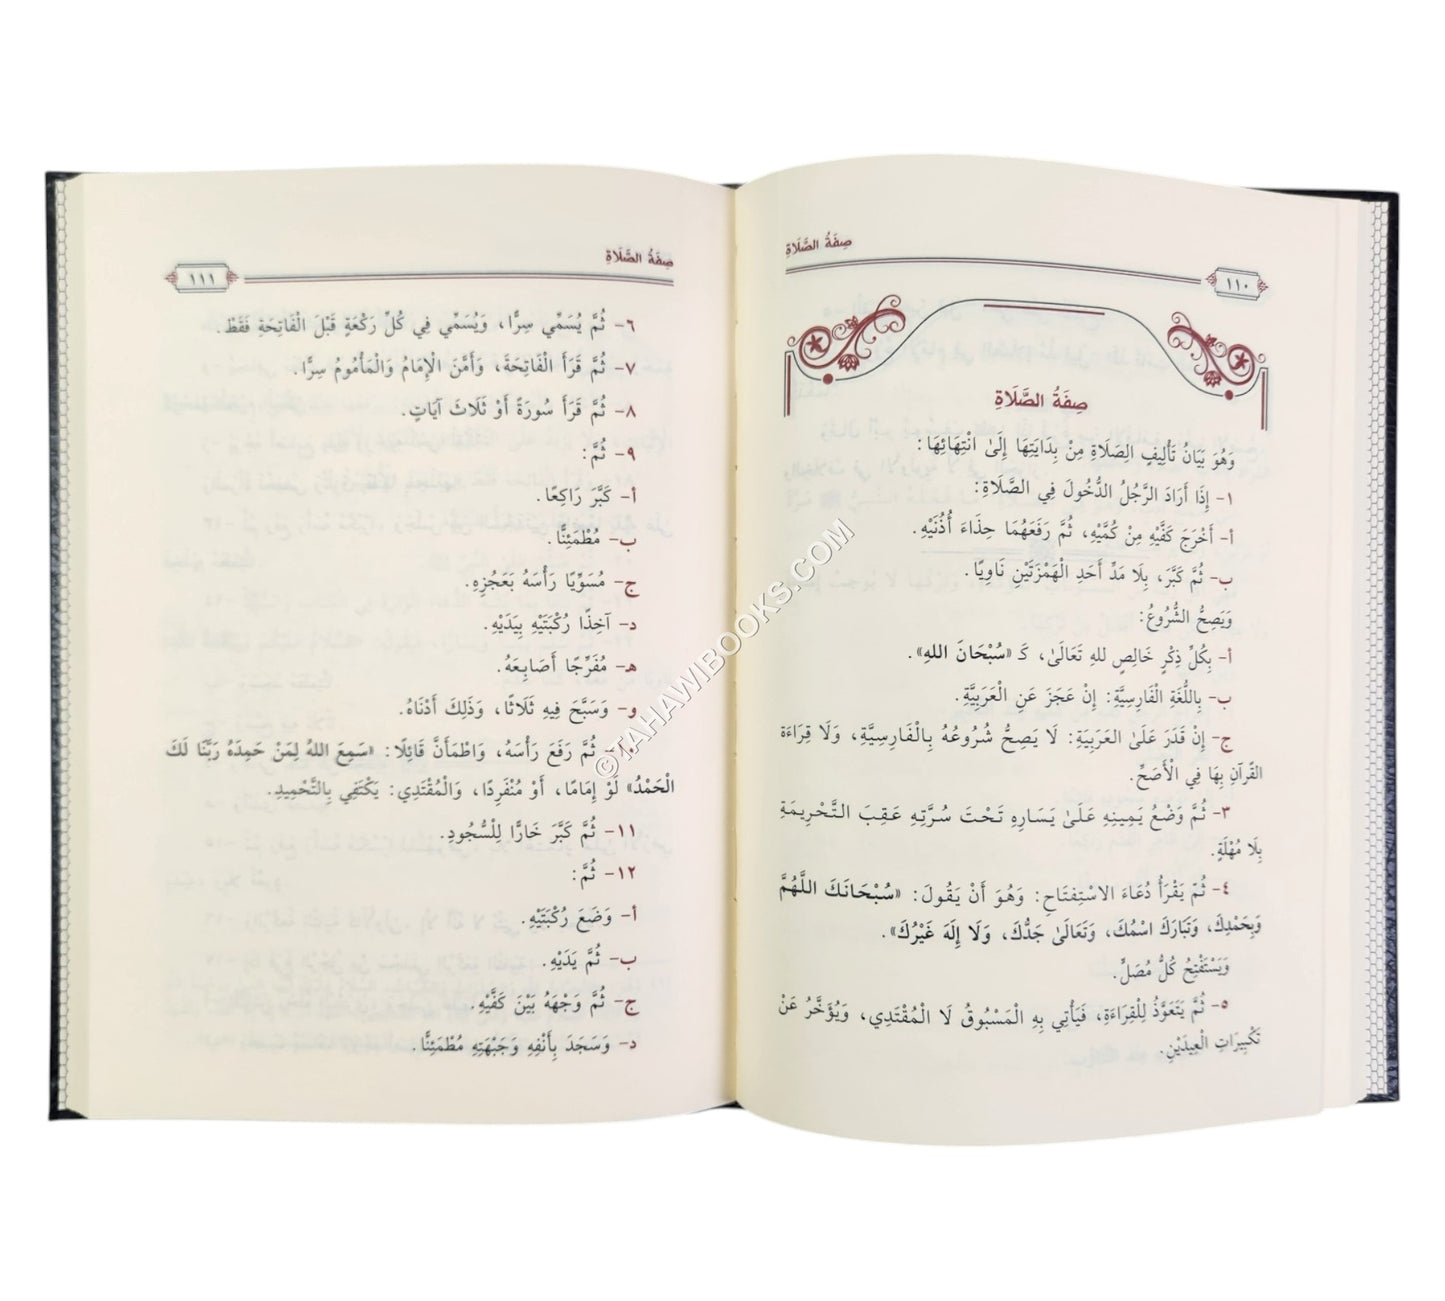 صِفَةُ الصَّلَاةِ
١١٠
صِفَةُ الصَّلَاةِ
وَهُوَ بَيَانُ تَأْلِيفِ الصَّلَاةِ مِنْ بِدَايَتِهَا إِلَىٰ انْتِهَائِهَا:
١- إِذَا أَرَادَ الرَّجُلُ الدُّخُولَ فِي الصَّلَاةِ:
أ- أَخْرَجَ كَفَّيْهِ مِنْ كُمَّيْهِ، ثُمَّ رَفَعَهُمَا حِذَاءَ أُذُنَيْهِ.
ب- ثُمَّ كَبَّرَ، بِلَا مَدِّ أَحَدِ الْهَمْزَتَيْنِ نَاوِيًا.
وَيَصِحُّ الشُّرُوعُ:
أ- بِكُلِّ ذِكْرٍ خَالِصٍ للهِ تَعَالَىٰ، كَـ «سُبْحَانَ اللهِ».
ب- بِاللُّغَةِ الْفَارِسِيَّةِ: إِنْ عَجَزَ عَنِ الْعَرَبِيَّةِ.
ج- إِنْ قَدَرَ عَلَىٰ العَرَبِيَةِ: لَا يَصِحُّ شُرُوعُهُ بِالْفَارِسِيَّةِ، وَلَا قِرَاءَة
القُرْآنِ بِهَا فِي الْأَصَحِّ.
٣- ثُمَّ وَضْعُ يَمِينِهِ عَلَىٰ يَسَارِهِ تَحْتَ سُرَّتِهِ عَقِبَ التَّحْرِيمَةِ
بِلَا مُهْلَةٍ.
٤- ثُمَّ يَقْرَأُ دُعَاءَ الاسْتِفْتَاحِ: وَهُوَ أَنْ يَقُولَ: «سُبْحَانَكَ اللَّهُمَّ
وَبِحَمْدِكَ، وَتَبَارَكَ اسْمُكَ، وَتَعَالَىٰ جَدُّكَ، وَلَا إِلَهَ غَيْرُكَ».
وَيَسْتَفْتِحُ كُلُّ مُصَلٍّ.
٥- ثُمَّ يَتَعَوَّذُ لِلْقِرَاءَةِ، فَيَأْتِي بِهِ الْمَسْبُوقُ لَا الْمُقْتَدِي، وَيُؤَخَّرُ عَنْ
تَكْبِيرَاتِ الْعِيدَيْنِ.
صِفَةُ الصَّلَاةِ
١١١
٦- ثُمَّ يُسَمِّي سِرًّا، وَيُسَمِّي فِي كُلِّ رَكْعَةٍ قَبْلَ الْفَاتِحَةِ فَقَطْ.
٧- ثُمَّ قَرَأَ الْفَاتِحَةَ، وَأَمَّنَ الْإِمَامُ وَالْمَأْمُومُ سِرًّا.
٨- ثُمَّ قَرَأَ سُورَةً أَوْ ثَلَاثَ آيَاتٍ.
٩- ثُمَّ:
أ- كَبَّرَ رَاكِعًا.
ب- مُطْمَئِنًّا.
ج- مُسَوِّيًا رَأْسَهُ بِعَجُزِهِ.
د- آخِذًا رُكْبَتَيْهِ بِيَدَيْهِ.
هـ- مُفَرِّجًا أَصَابِعَهُ.
و- وَسَبَّحَ فِيهِ ثَلَاثًا، وَذَلِكَ أَدْنَاهُ.
١٠- ثُمَّ رَفَعَ رَأْسَهُ، وَاطْمَأَنَّ قَائِلًا: «سَمِعَ اللهُ لِمَنْ حَمِدَهُ رَبَّنَا لَكَ
الْحَمْدُ» لَوْ إِمَامًا، أَوْ مُنْفَرِدًا، وَالْمُقْتَدِي: يَكْتَفِي بِالتَّحْمِيدِ.
١١- ثُمَّ كَبَّرَ خَارًّا لِلسُّجُودِ.
١٢- ثُمَّ:
أ- وَضَعَ رُكْبَتَيْهِ.
ب- ثُمَّ يَدَيْهِ.
ج- ثُمَّ وَجْهَهُ بَيْنَ كَفَّيْهِ.
د- وَسَجَدَ بِأَنْفِهِ وَجَبْهَتِهِ مُطْمَئِنًّا.
©TAHAWIBOOKS.COM